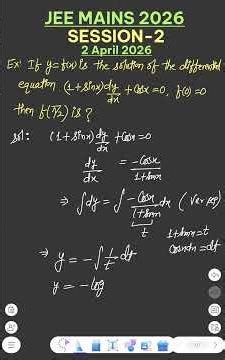 JEE MAINS 2026
SESSION-2
2 April 2026
Ex: If y=f(x) is the solution of the differential
equation (1+sinx)dy/dx + cosx=0, f(0)=0
then f(π/2) is ?
Sol: (1+sinx)dy/dx + cosx=0
dy/dx = -cosx/1+sinx
⇒ ∫dy = ∫ -cosx/(1+sinx) dx (Var sep)
t
1+sinx=t
cosxdx=dt
⇒ y = -∫ 1/t dt
y = -log